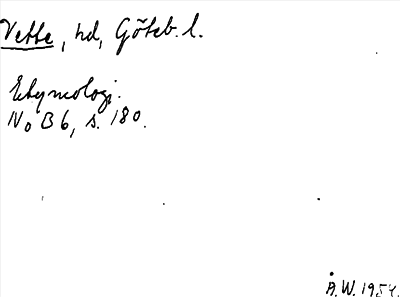 Vette, hd, Göteb. l.
Etymologi.
NoB 6, s. 180.
Å. W. 1954.